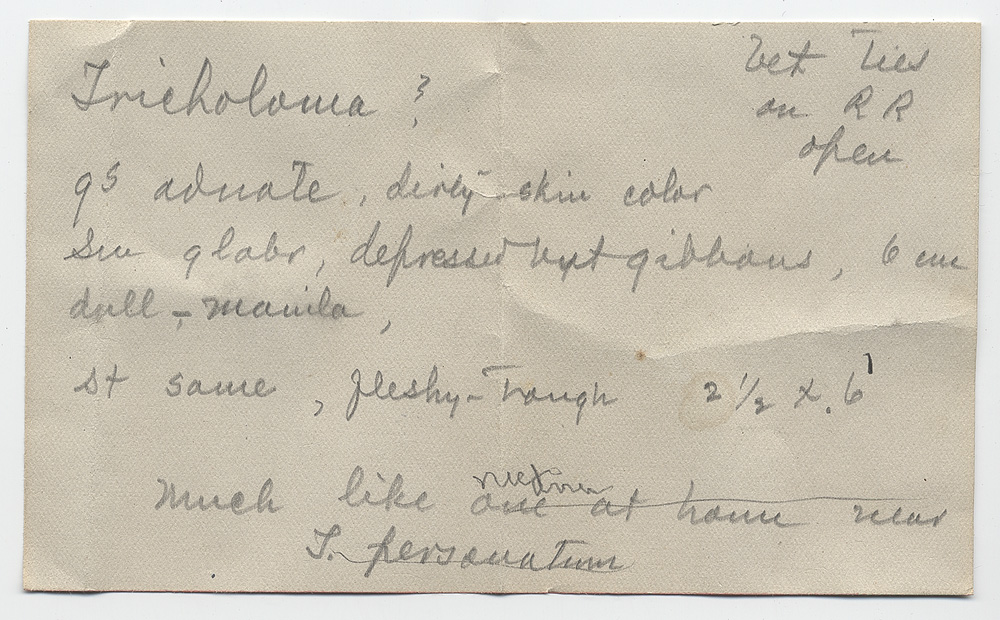 Tricholoma ?
bet ties
on R R
open
gs adnate, dirty skin color
Sur glabr, depressed but gibbous, 6 cm
dull - manila,
st same, fleshy-tough 2 1/2 x .6
much like one at home near
T. personatum